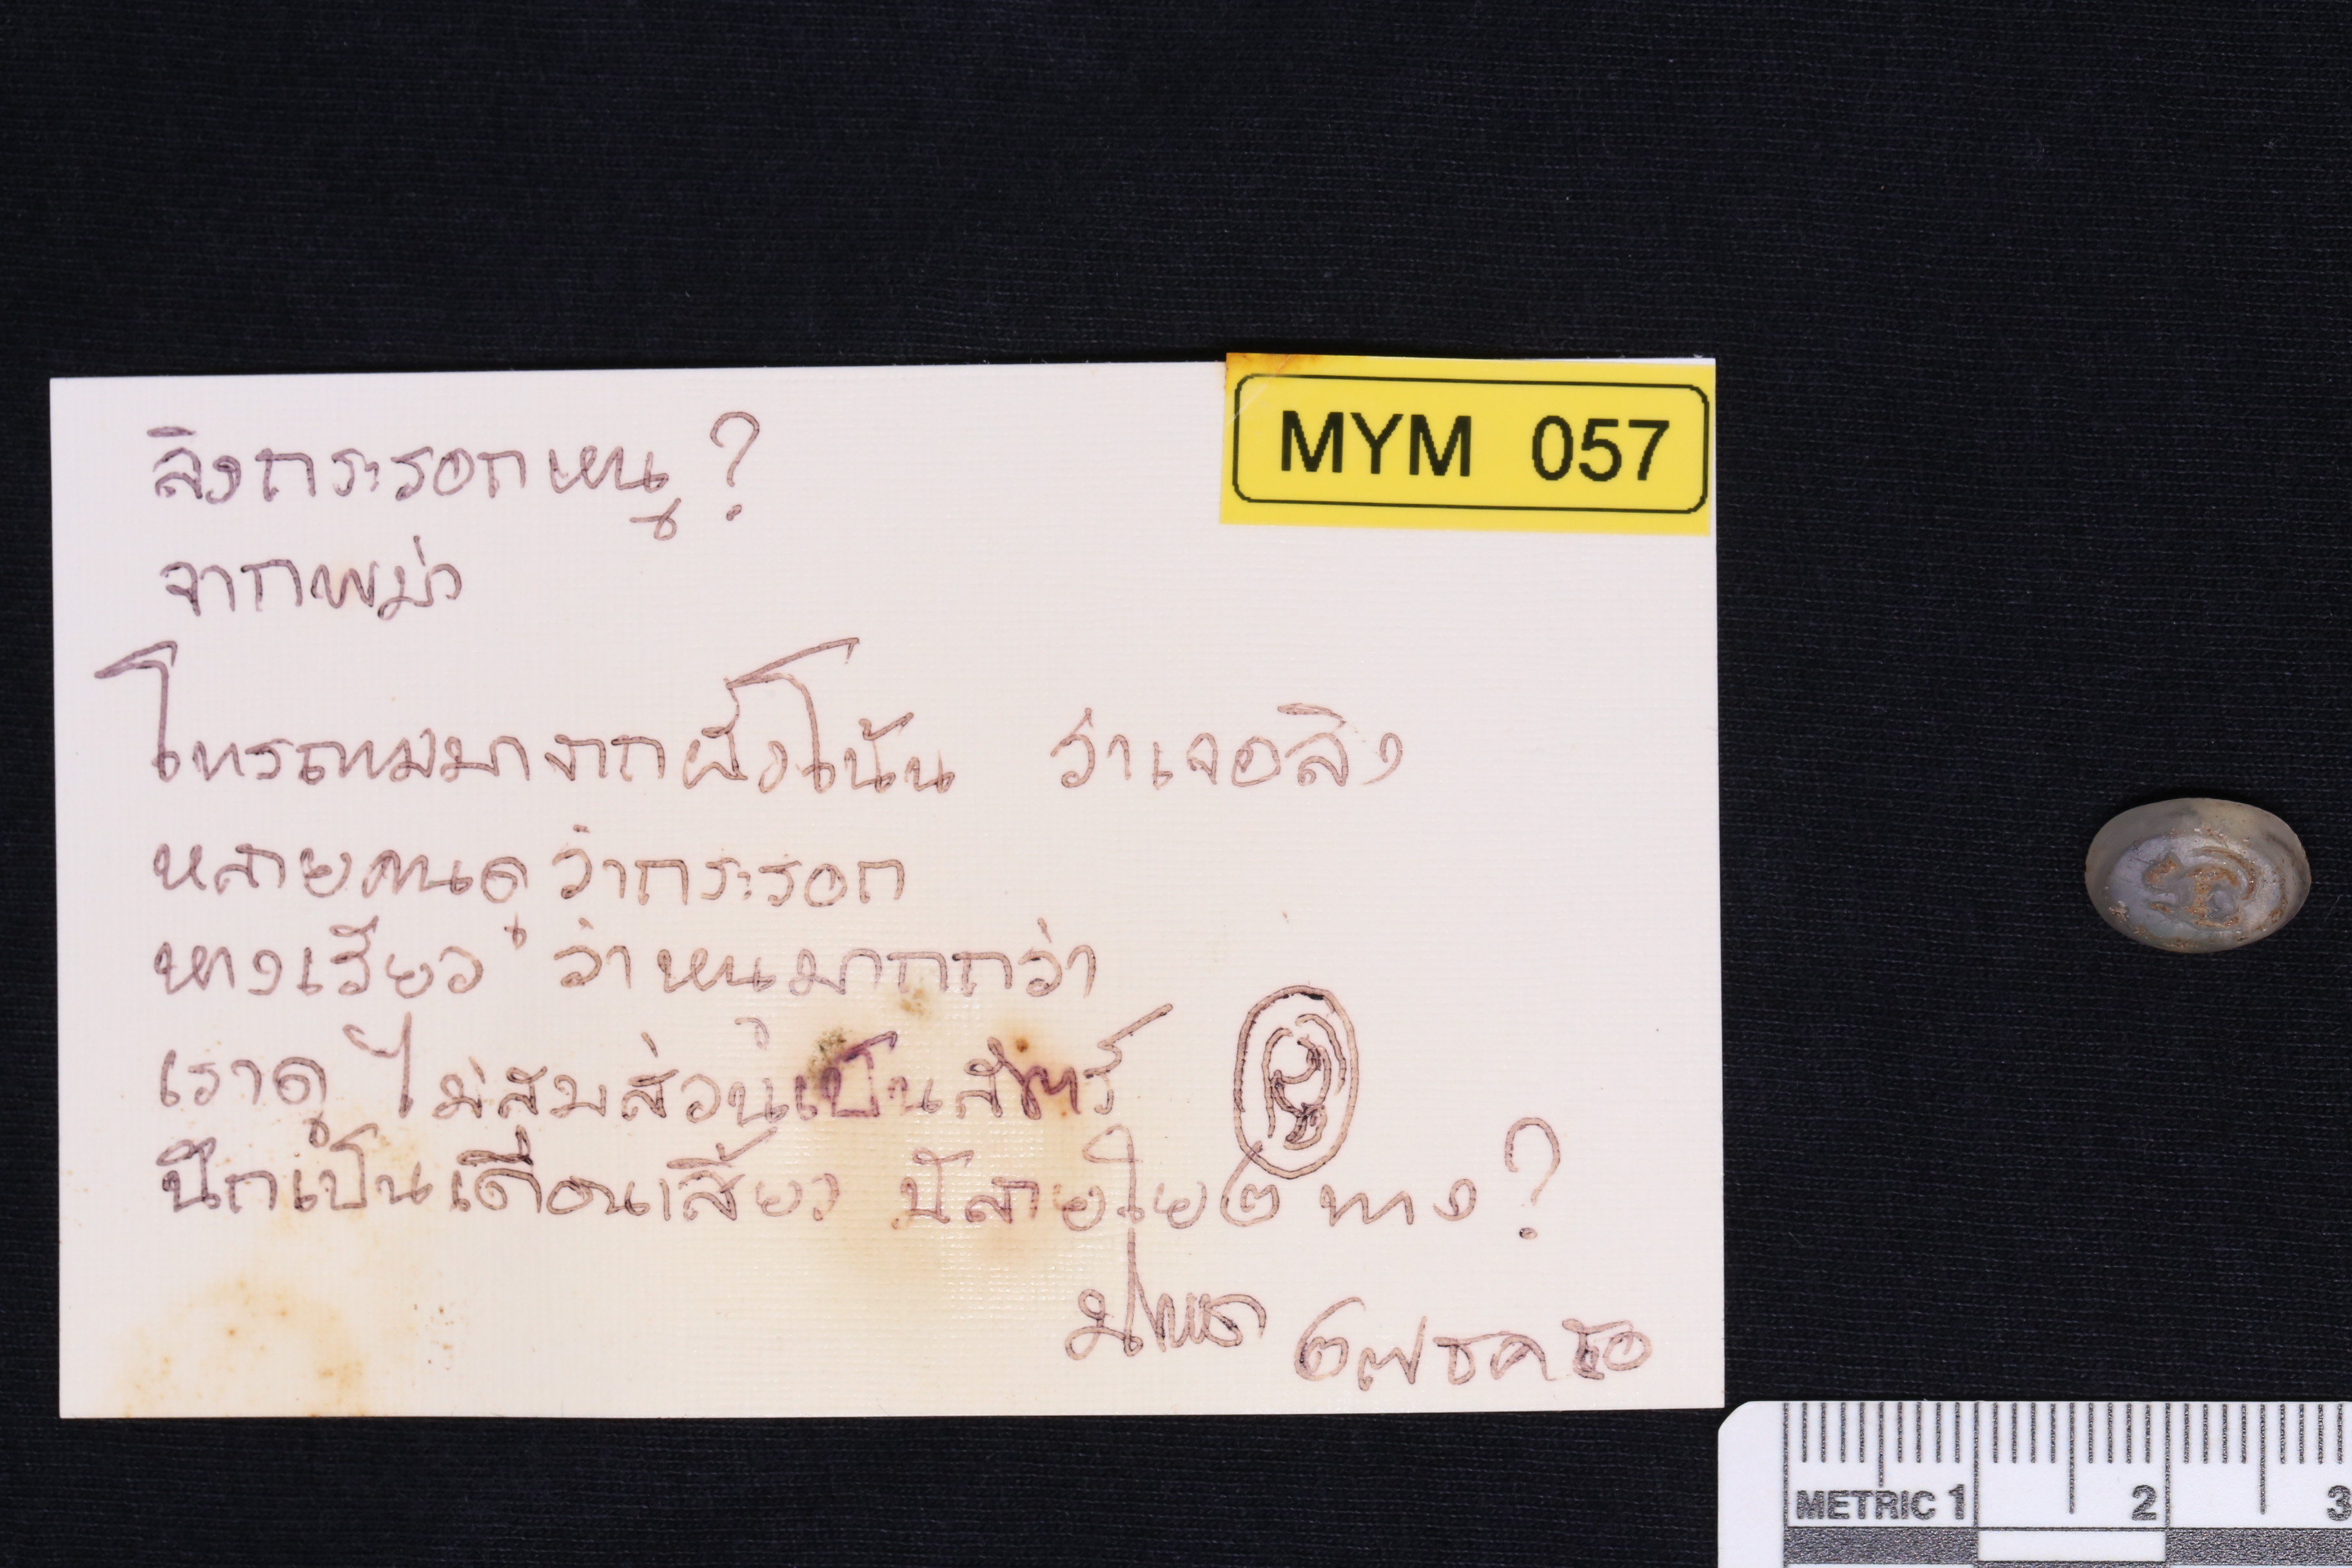 MYM 057
ลิงกระรอกหนู?
จากพม่า
โทรถามมาจากฝั่งโน้น ว่าเจอลิง
หลายคนดูว่ากระรอก
หางเรียว ว่าหนูมากกว่า
เราดูไม่สมส่วนเป็นสัตว์
นึกเป็นเดือนเสี้ยว มีสายใย ๒ ทาง?
๒๗ ธค
METRIC 1 2 3